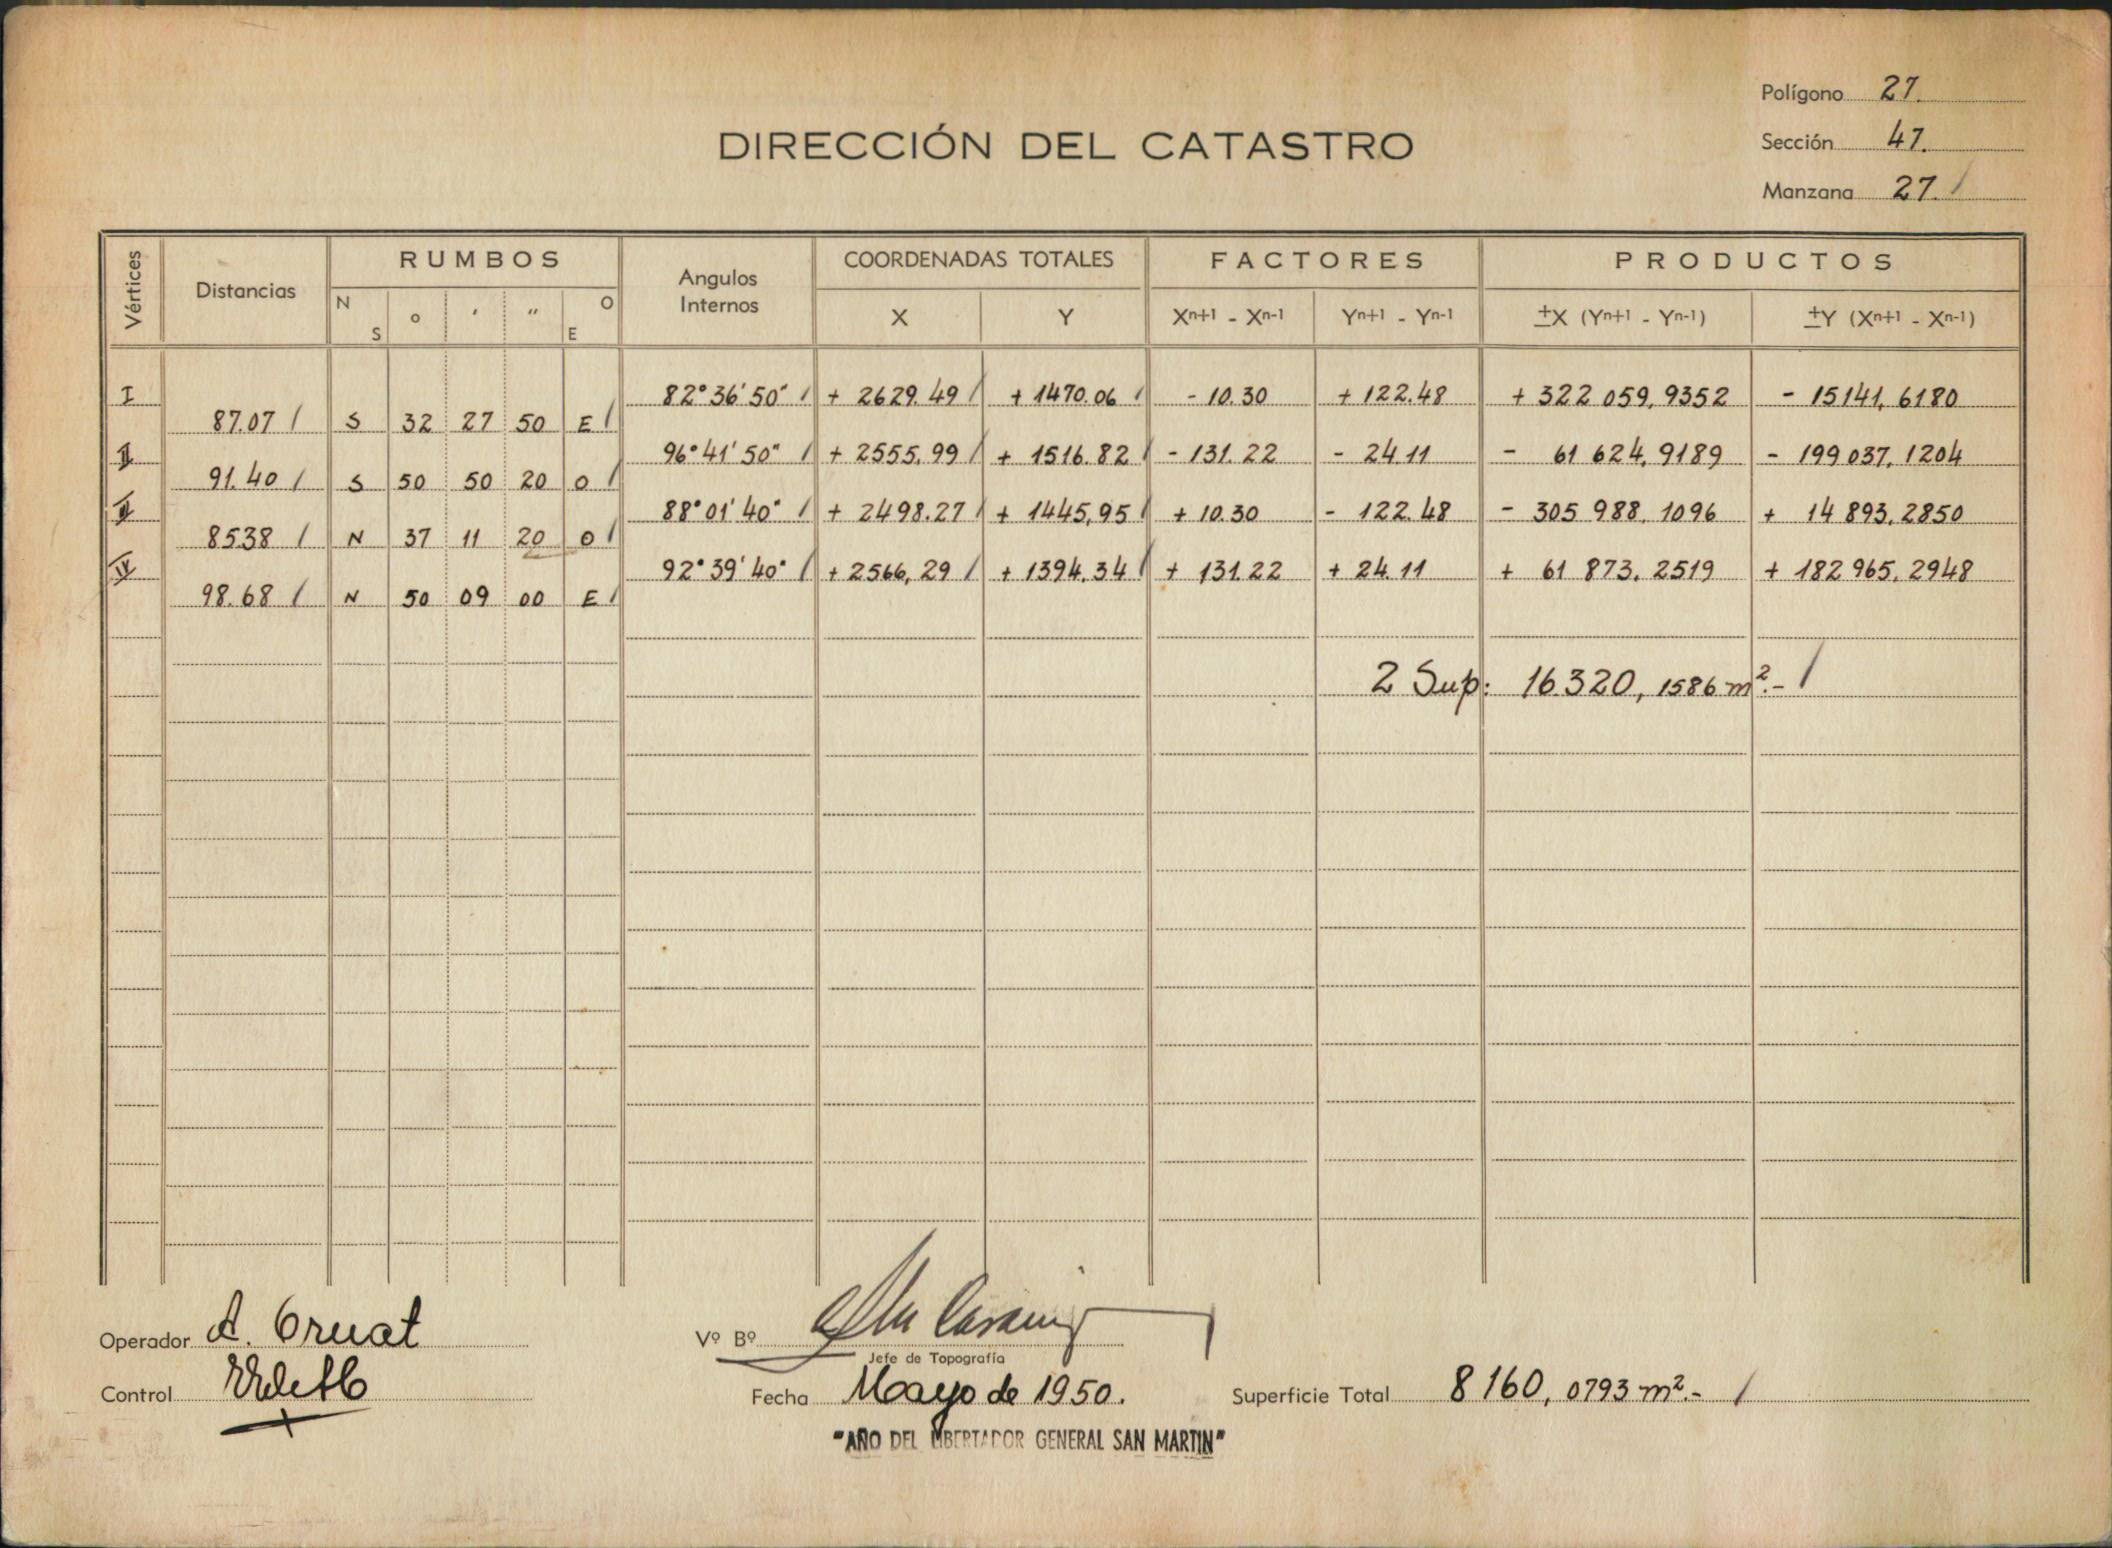 Polígono 27.
DIRECCIÓN DEL CATASTRO
Sección 47.
Manzana 27. /
Vértices Distancias RUMBOS Angulos Internos COORDENADAS TOTALES FACTORES PRODUCTOS
N S ° ' " O E X Y Xn+1 - Xn-1 Yn+1 - Yn-1 ±X (Yn+1 - Yn-1) ±Y (Xn+1 - Xn-1)
I 82°36'50" / + 2629.49 / + 1470.06 / - 10.30 + 122.48 + 322 059,9352 - 15141,6180
87.07 / S 32 27 50 E /
II 96°41'50" / + 2555,99 / + 1516.82 / - 131.22 - 24.11 - 61 624,9189 - 199 037,1204
91.40 / S 50 50 20 O /
III 88°01'40" / + 2498.27 / + 1445,95 / + 10.30 - 122.48 - 305 988,1096 + 14 893,2850
85.38 / N 37 11 20 O /
IV 92°39'40" / + 2566,29 / + 1394.34 / + 131.22 + 24.11 + 61 873,2519 + 182 965,2948
98.68 / N 50 09 00 E /
2 Sup: 16.320, 1586 m².- /
Operador
Vº Bº
Jefe de Topografía
Control
Fecha Mayo de 1950.
Superficie Total 8160, 0793 m².- /
"AÑO DEL LIBERTADOR GENERAL SAN MARTIN"